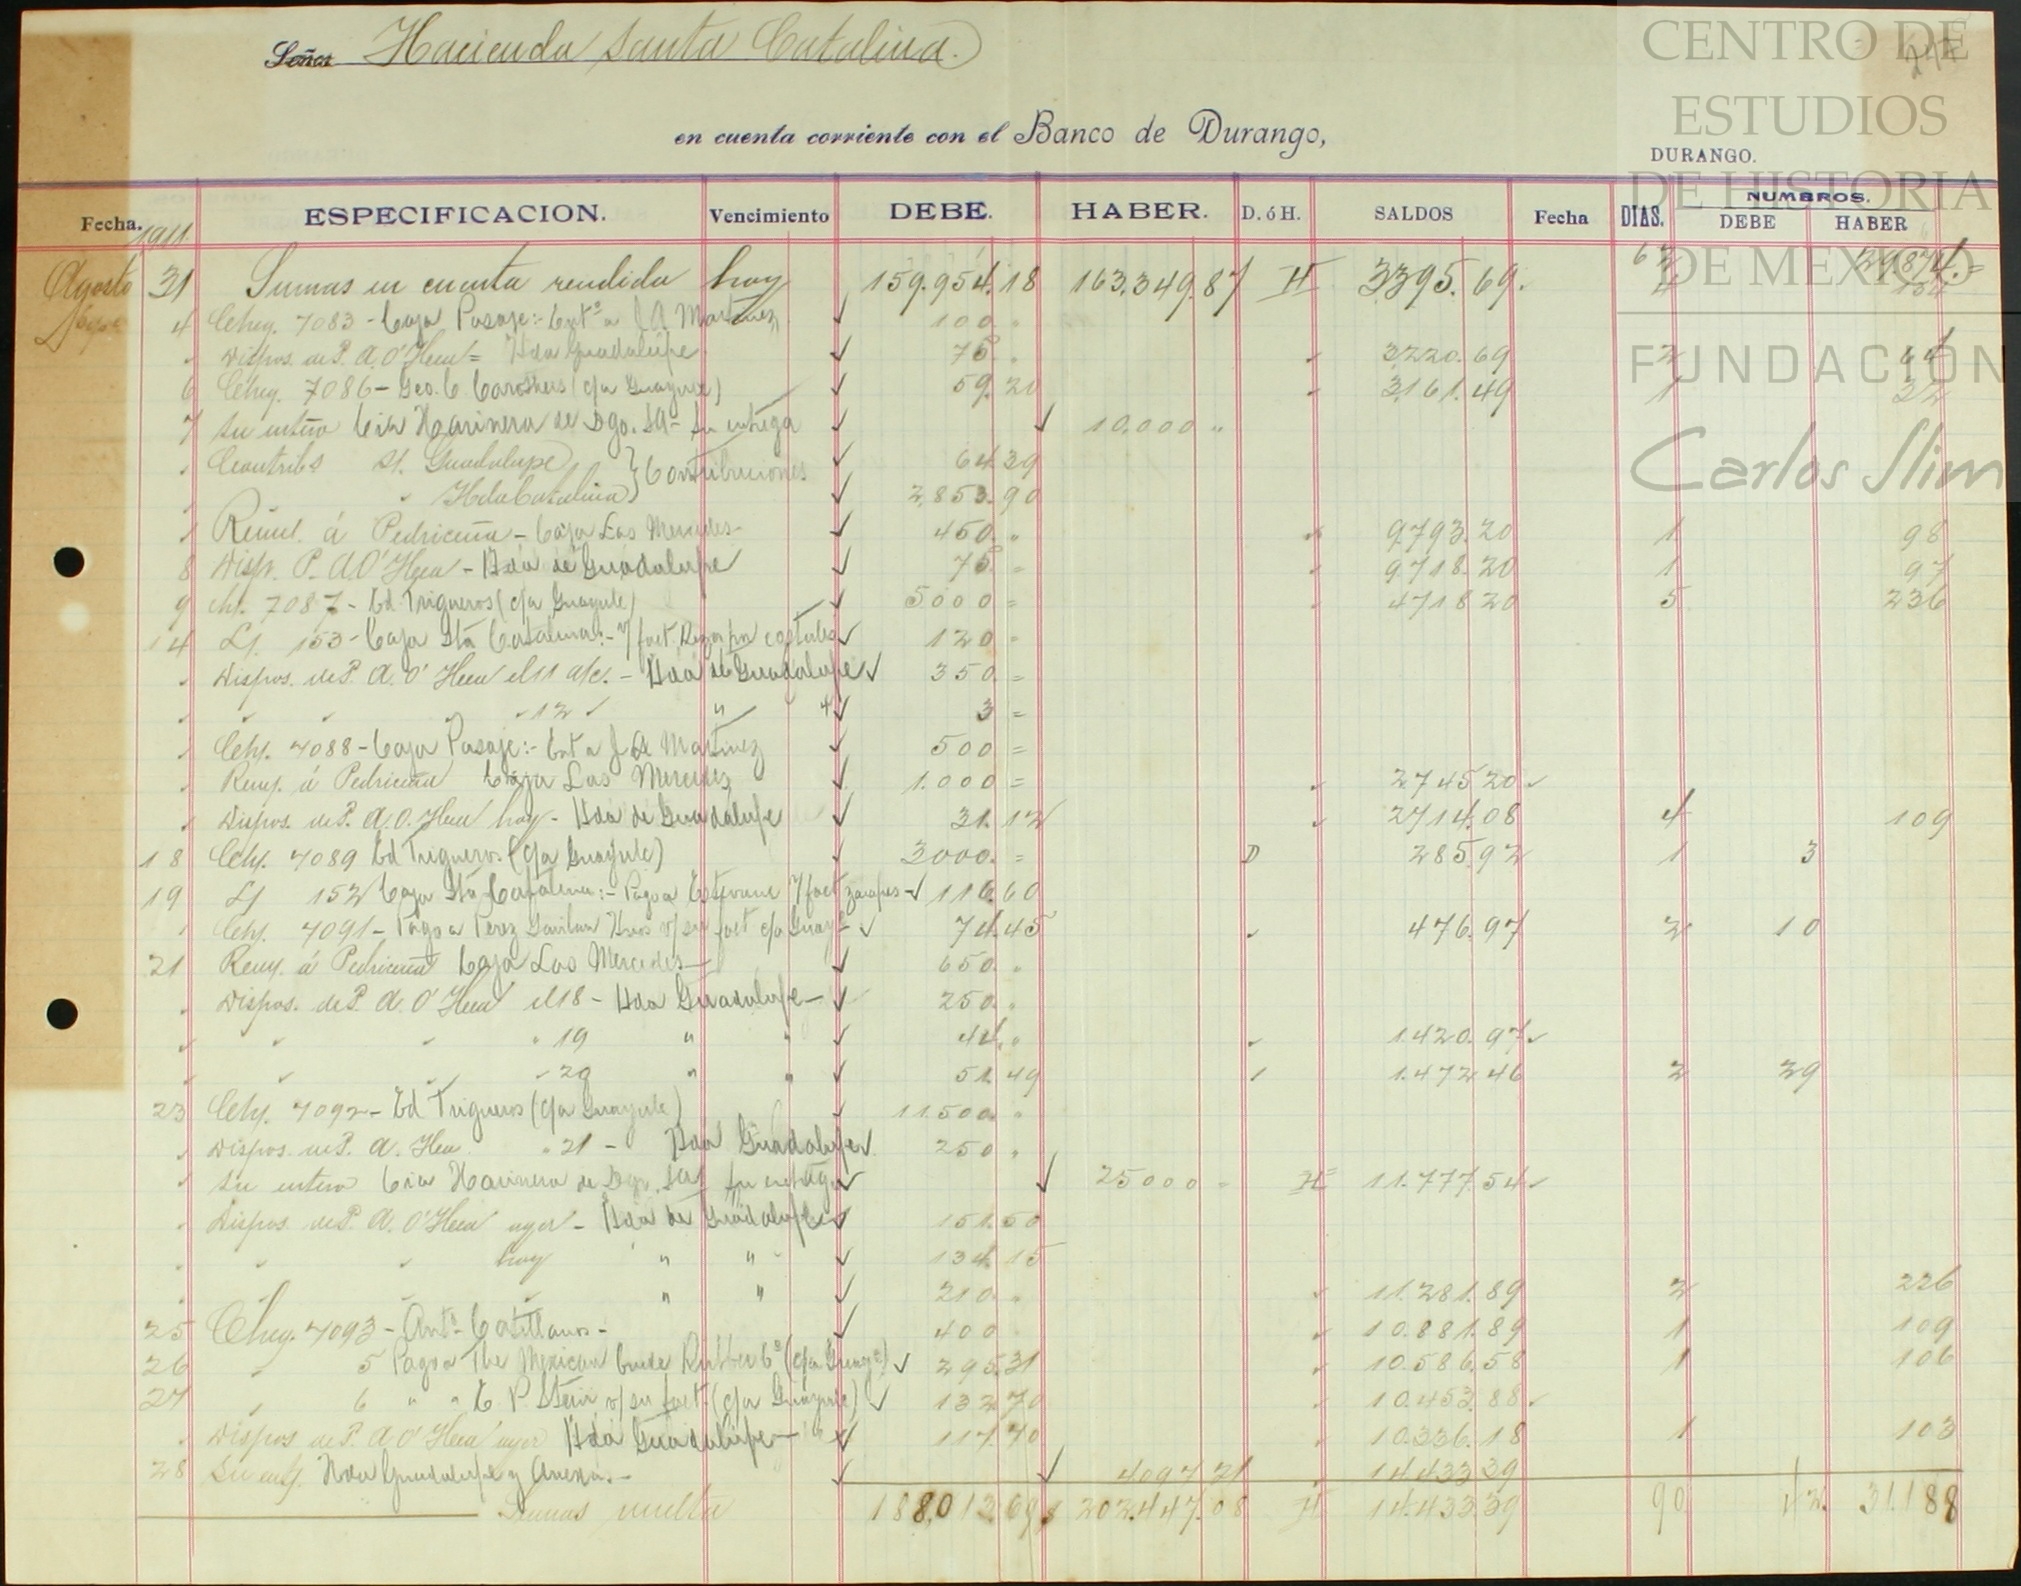 Señor Hacienda Santa Catalina.
en cuenta corriente con el Banco de Durango,
DURANGO.
CENTRO DE
ESTUDIOS
DE HISTORIA
DE MEXICO
FUNDACIÓN
Carlos Slim
Fecha. ESPECIFICACION. Vencimiento DEBE. HABER. D. ó H. SALDOS Fecha DIAS. NUMEROS.
DEBE HABER
1911
Agosto 31 Sumas en cuenta rendida hoy 159.954.18 163.349.87 H 3395.69.
4 Cheq. 7083 - Caja Pasaje:- Entº a J A Martinez 100 "
Dispos. de P. A. O'Hea = Hda Guadalupe 75 " 3220.69 2 64
6 Cheq. 7086 - Geo. C. Carothers (c/a Guayule) 59.20 3161.49 1 32
7 Su entero Cia Harinera de Dgo. SA - Su entrega 10.000 "
Contribs St. Guadalupe } Contribuciones 64.39
" Hda Catalina } 2,853.90
Reml. á Pedriceña - Caja Las Mercedes - 450 " 9793.20 1 98
8 Disp. P. A O'Hea - Hda de Guadalupe 75 = 9718.20 1 97
9 Ch. 7087 - Ed Trigueros (c/a Guayule) 5000 = 4718 20 5 236
14 Lf. 153 - Caja Sta Catalina:- 120 =
Dispos. de P. A. O'Hea el 11 a/c. - Hda de Guadalupe 350 =
" 12 " " 3 =
Chq. 7088 - Caja Pasaje:- Ent a J. A Martinez 500 =
Remf. á Pedriceña Caja Las Mercedes 1.000 = 2745 20
Dispos. de P. A. O. Hea hoy - Hda de Guadalupe 31.12 2714.08 4 109
18 Chq. 7089 Ed Trigueros (c/a Guayule) 3000. = D 285.92 1 3
19 Lf 152 Caja Sta Catalina:- Pago a 116.60
Chq. 7091 - Pago a Perez Gavilan Hnos v/su fact c/a Guaye 74.45 476.97 2 10
21 Remf. á Pedriceña Caja Las Mercedes 650 "
Dispos. de P. A. O'Hea el 18 - Hda Guadalupe - 250 "
" 19 " " 44. " 1.420.97
" 20 " " 51.49 1.472 46 2 29
23 Chq. 7092 - Ed Trigueros (c/a Guayule) 11.500 "
Dispos. de P. A. Hea " 21 - Hda Guadalupe 250 "
Su entero Cia Harinera de Dgo. SA Su entrega 25000 " H 11.777.54
Dispos. de P. A. O'Hea ayer - Hda de Guadalupe 151.50
" hoy " " 134.15
" " " 210 " 11.281.89 2 226
25 Cheq. 7093 - Antº Catillanos - 400 10.881.89 1 109
26 " 5 Pago a The Mexican Crude Rubber Cº (c/a Guaye) 295.31 10.586.58 1 106
27 " 6 " " v/su fact. (c/a Guayule) 132.70 10.453.88
Dispos de P. A O'Hea ayer Hda Guadalupe - 117.70 10.336.18 1 103
28 Su entg. Hda Guadalupe y Anexas. - 4097 21 14.433 39
Sumas vuelta 188.013.69 202.447.08 H 14.433.39 90 42 31.188